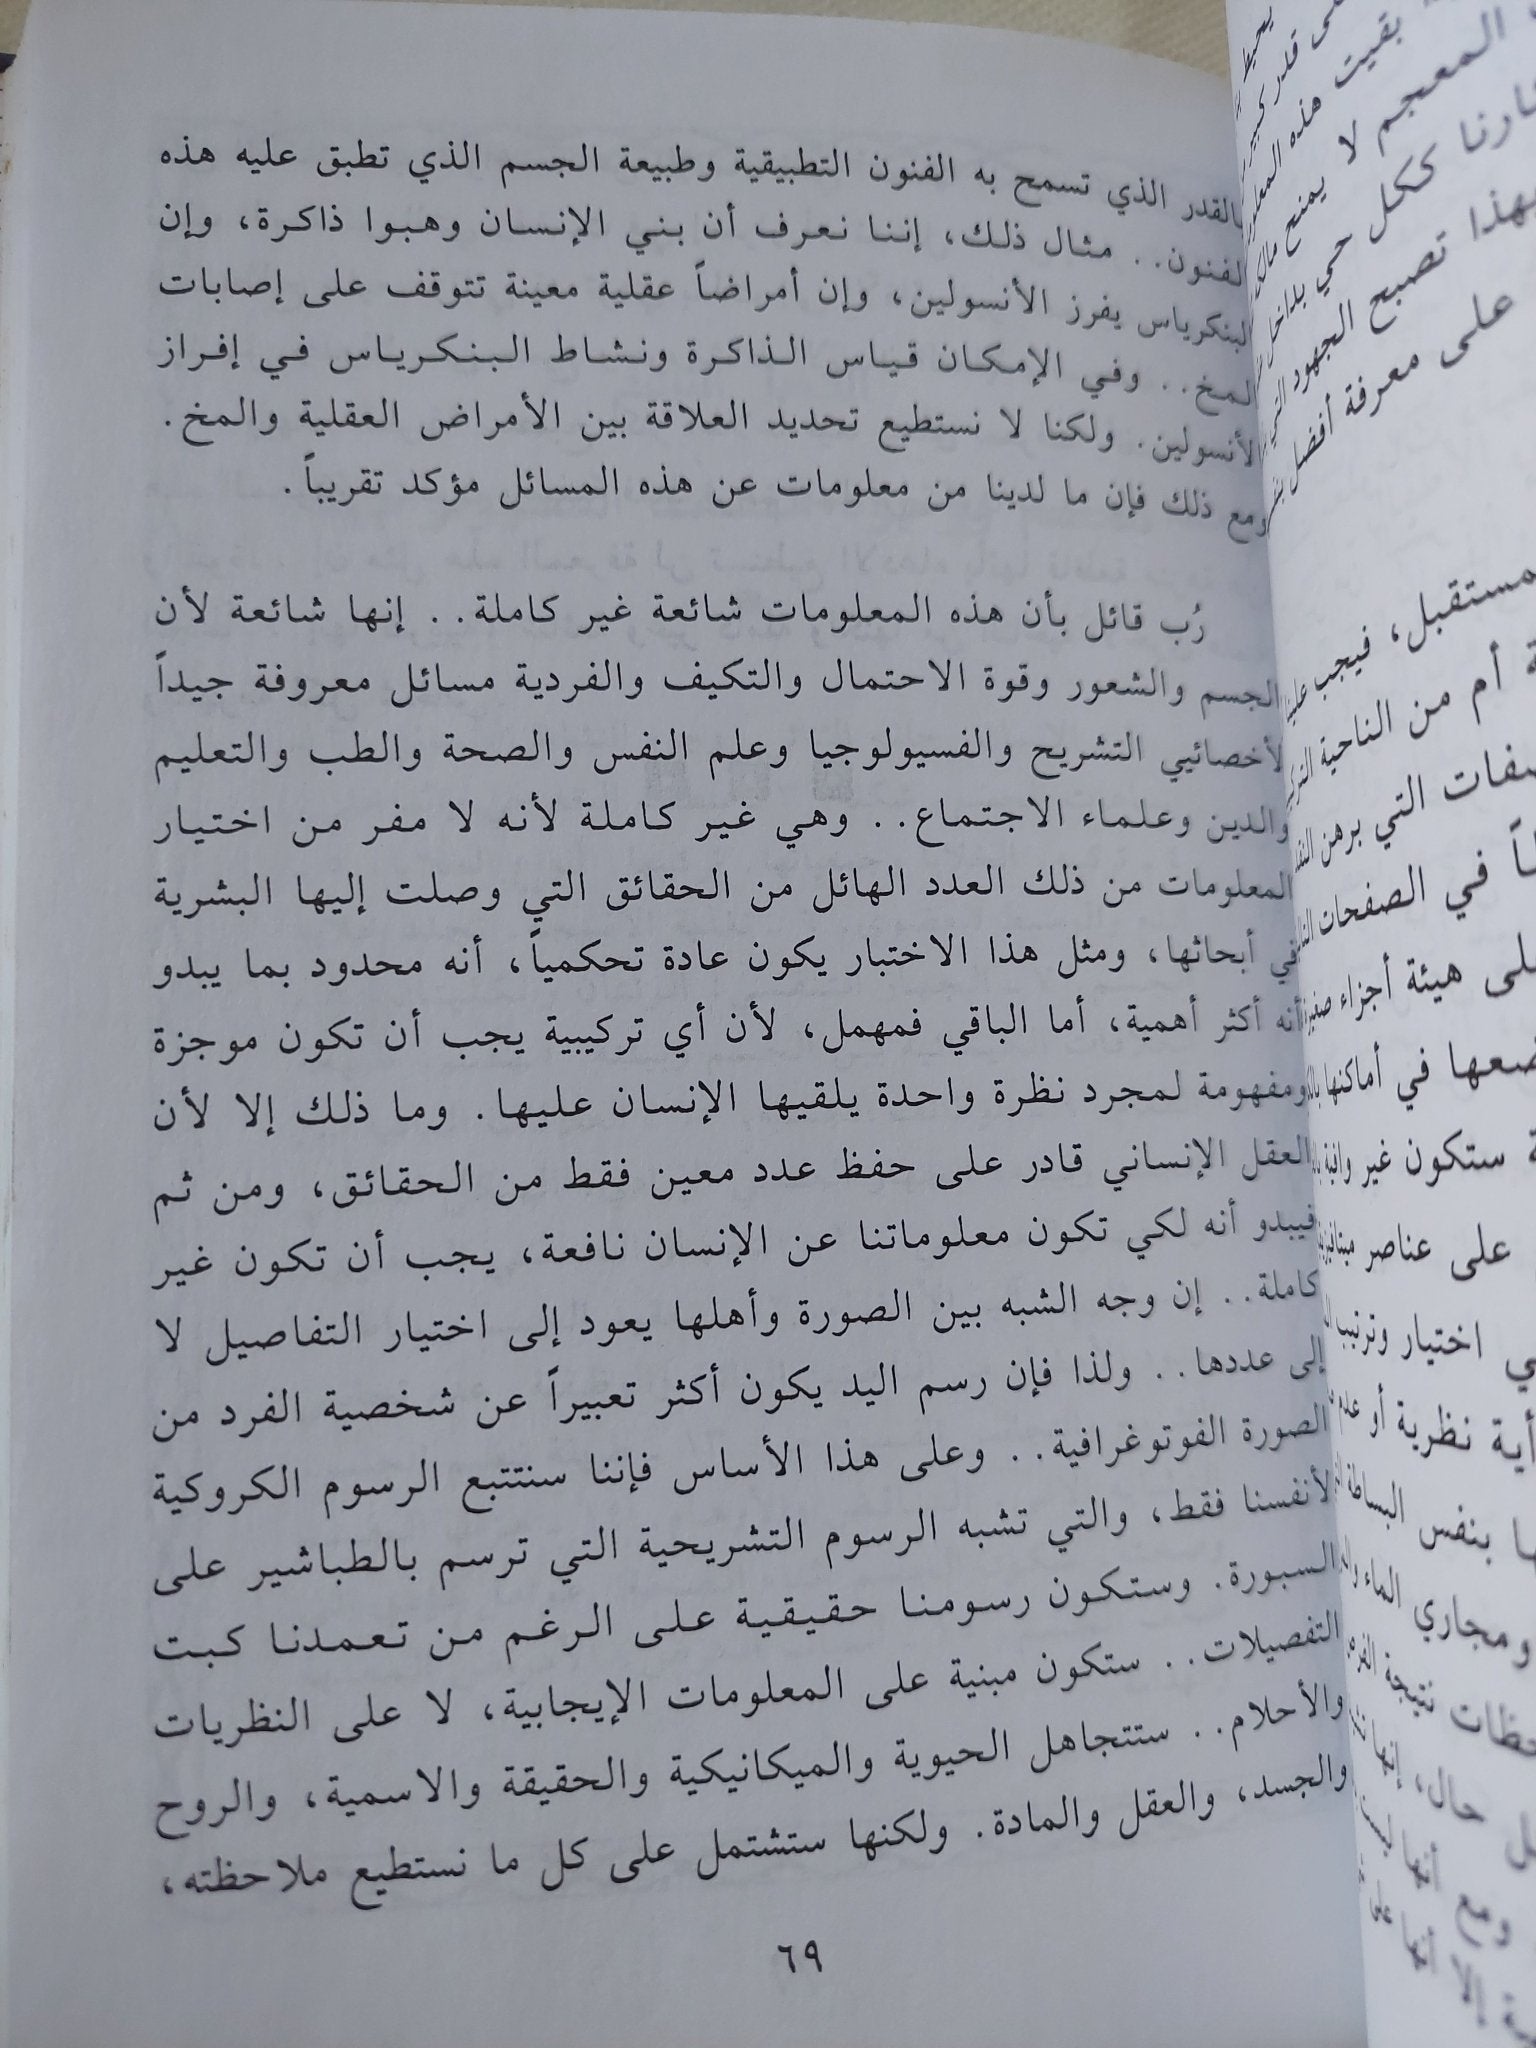 بالقدر الذي تسمح به الفنون التطبيقية وطبيعة الجسم الذي تطبق عليه هذه
الفنون.. مثال ذلك، إننا نعرف أن بني الإنسان وهبوا ذاكرة، وإن
البنكرياس يفرز الأنسولين، وإن أمراضاً عقلية معينة تتوقف على إصابات
المخ.. وفي الإمكان قياس الذاكرة ونشاط البنكرياس في إفراز
الأنسولين. ولكنا لا نستطيع تحديد العلاقة بين الأمراض العقلية والمخ.
ومع ذلك فإن ما لدينا من معلومات عن هذه المسائل مؤكد تقريباً.
رُب قائل بأن هذه المعلومات شائعة غير كاملة.. إنها شائعة لأن
الجسم والشعور وقوة الاحتمال والتكيف والفردية مسائل معروفة جيداً
لأخصائيي التشريح والفسيولوجيا وعلم النفس والصحة والطب والتعليم
والدين وعلماء الاجتماع.. وهي غير كاملة لأنه لا مفر من اختيار
المعلومات من ذلك العدد الهائل من الحقائق التي وصلت إليها البشرية
في أبحاثها، ومثل هذا الاختبار يكون عادة تحكمياً، أنه محدود بما يبدو
أنه أكثر أهمية، أما الباقي فمهمل، لأن أي تركيبية يجب أن تكون موجزة
ومفهومة لمجرد نظرة واحدة يلقيها الإنسان عليها. وما ذلك إلا لأن
العقل الإنساني قادر على حفظ عدد معين فقط من الحقائق، ومن ثم
فيبدو أنه لكي تكون معلوماتنا عن الإنسان نافعة، يجب أن تكون غير
كاملة.. إن وجه الشبه بين الصورة وأهلها يعود إلى اختيار التفاصيل لا
إلى عددها.. ولذا فإن رسم اليد يكون أكثر تعبيراً عن شخصية الفرد من
الصورة الفوتوغرافية.. وعلى هذا الأساس فإننا سنتتبع الرسوم الكروكية
لأنفسنا فقط، والتي تشبه الرسوم التشريحية التي ترسم بالطباشير على
السبورة. وستكون رسومنا حقيقية على الرغم من تعمدنا كبت
التفصيلات.. ستكون مبنية على المعلومات الإيجابية، لا على النظريات
والأحلام.. ستتجاهل الحيوية والميكانيكية والحقيقة والاسمية، والروح
والجسد، والعقل والمادة. ولكنها ستشتمل على كل ما نستطيع ملاحظته،
٦٩
بقيت هذه
المعجم لا يمنح
ككل حي بداخل
بهذا تصبح الجهود
على معرفة أفضل
مستقبل، فيجب
أم من الناحية
التي برهن
في الصفحات
هيئة أجزاء
في أماكنها
ستكون غير وافية
على عناصر
اختيار وترتيب
أية نظرية أو عدم
بنفس البساطة
ومجاري الماء
نتيجة
حال، إنها
ومع أنها